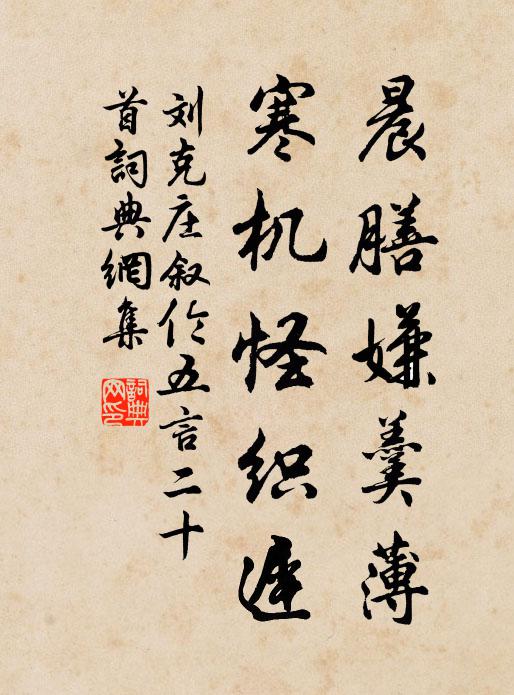 晨膳嫌羹薄
寒机怪织遲
刘克庄叙伦五言二十
首詞典網集
詞典
网印